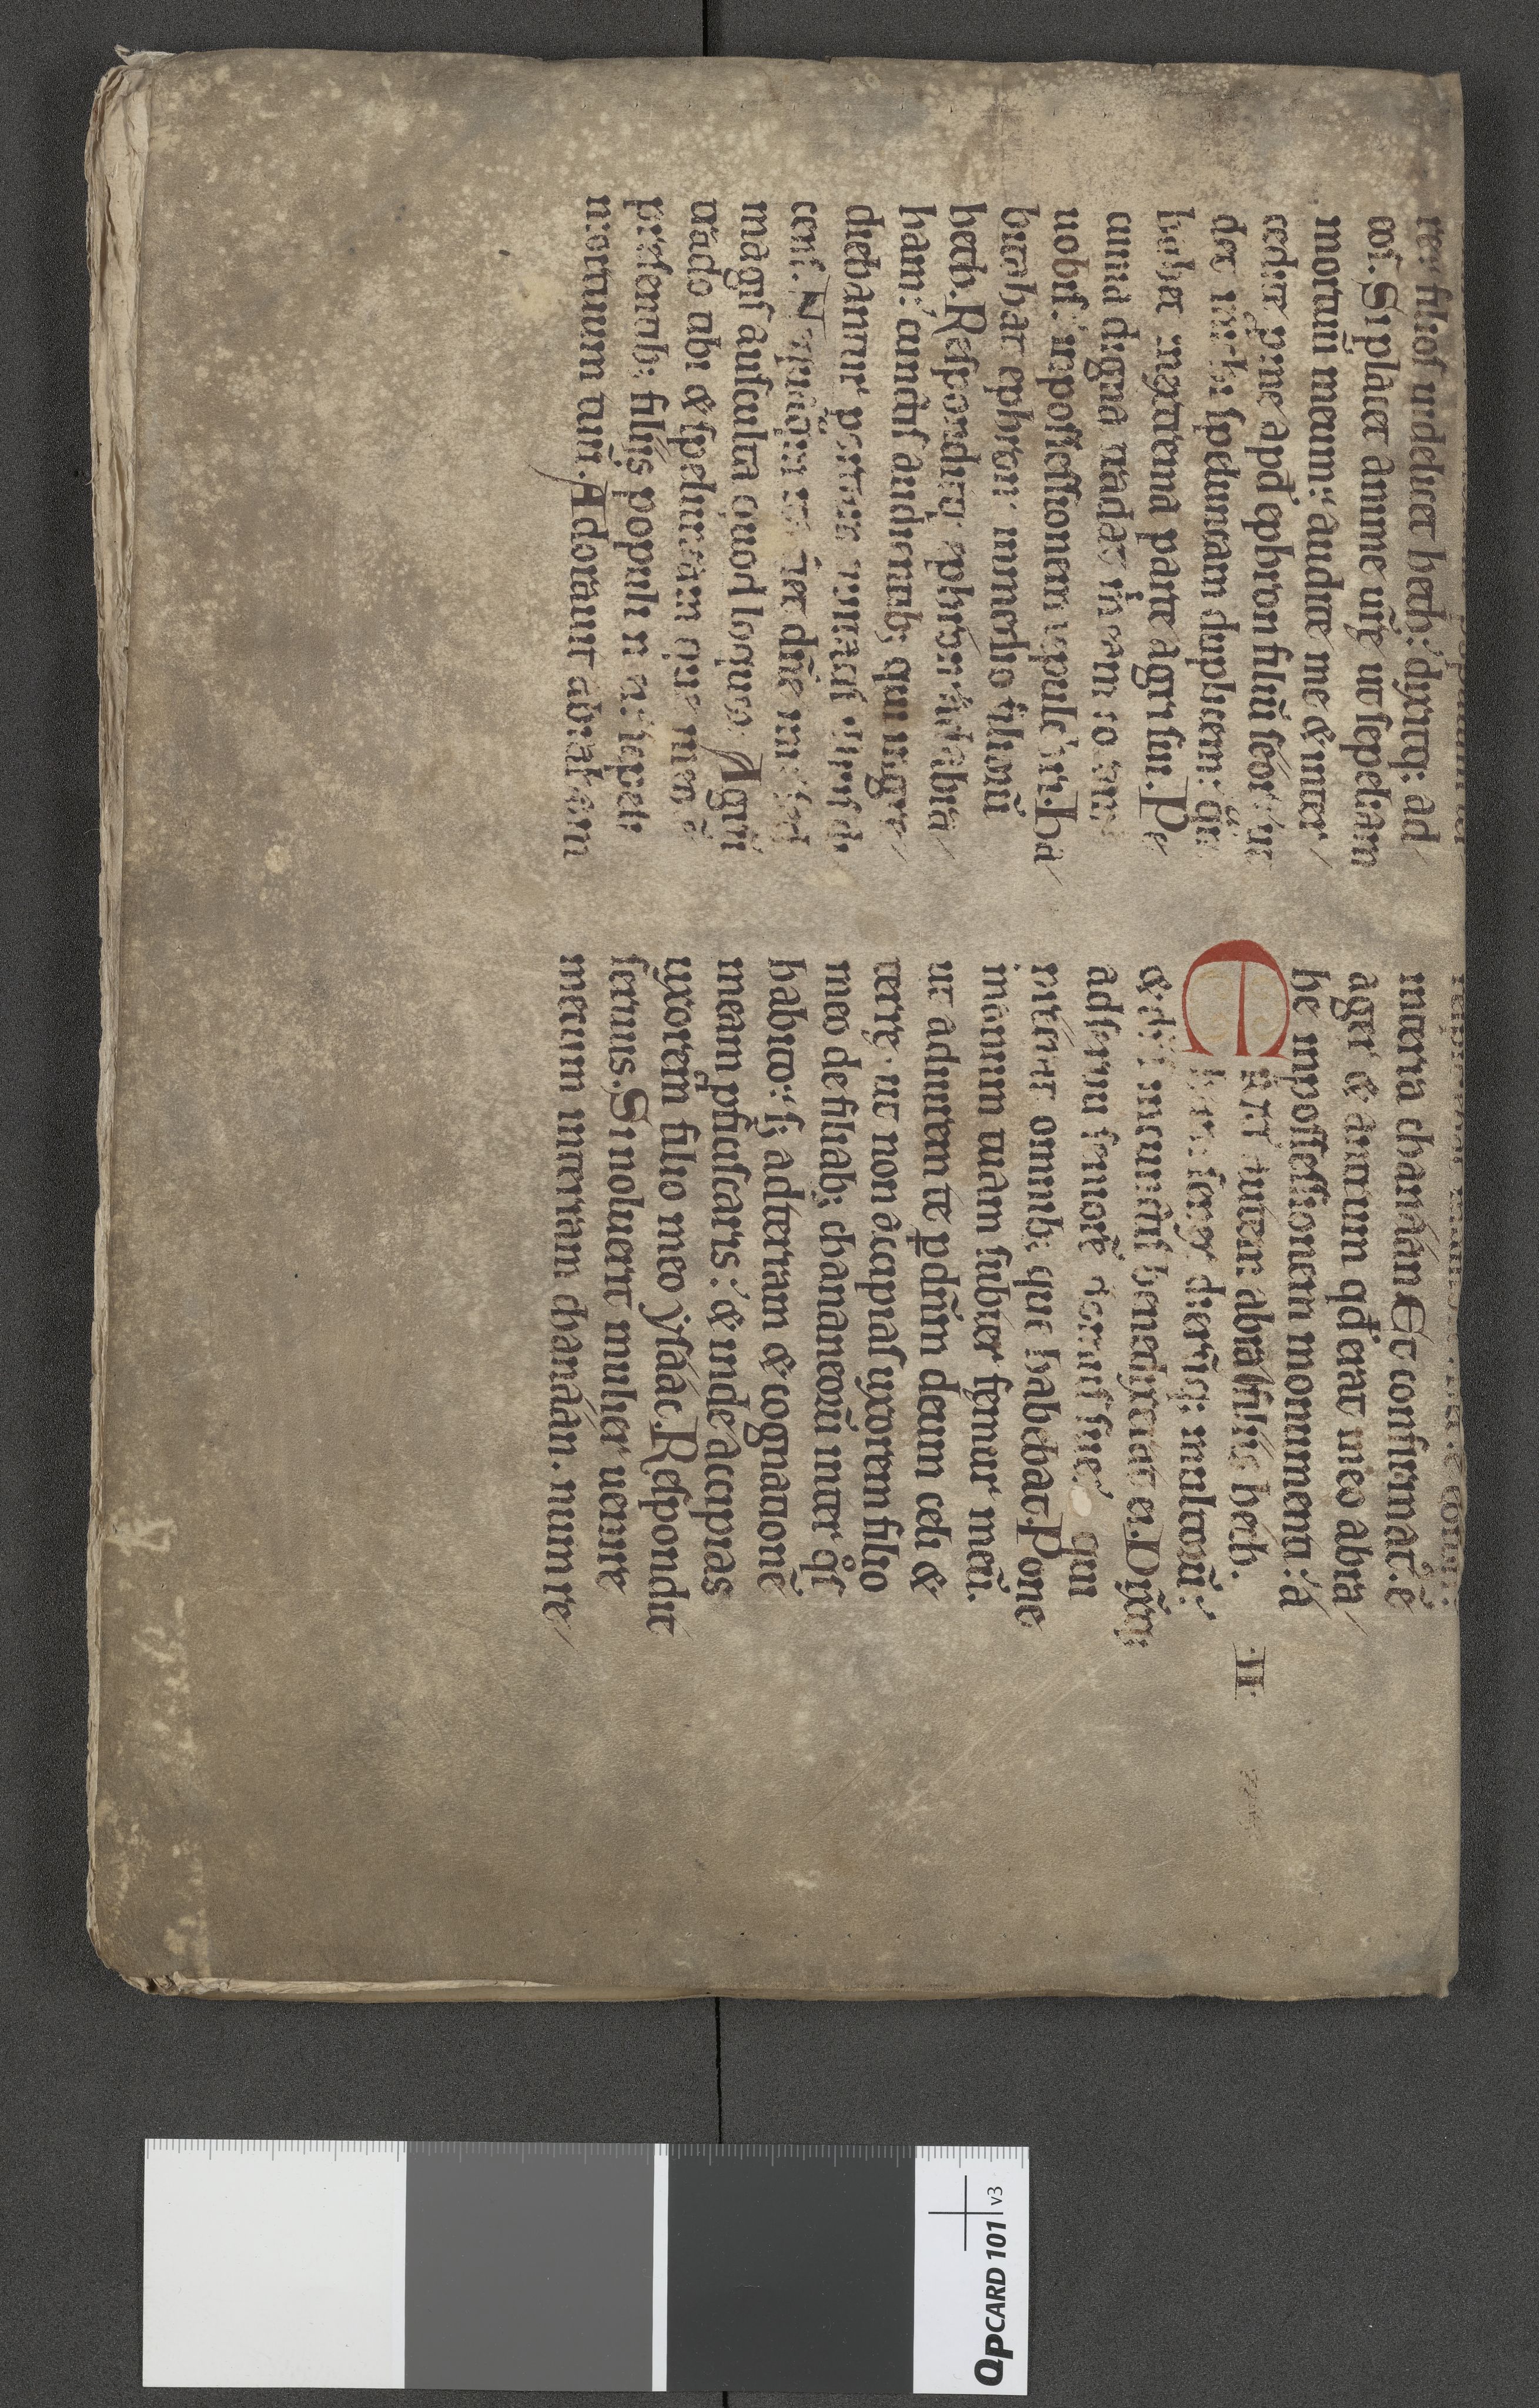 te. filios uidelicet heth: dixitq; ad
eos. Si placet anime ur̄ę ut sepeliam
mortuū meum: audite me & inter
cedite ꝓ me apd ephron filiū seor. ut
det michi speluncam duplicem: quā
habet in extrema parte agri sui. Pe
cunia digna tradat m eam coram
uobis: in possessionem sepulchri. Ha
bitabat ephron in medio filioꝝ
heth. Responditq; ephron ad abra
ham: cunctis audientib; qui ingre
diebantur portam ciuitatis illius di
cens. Nequaquam ita fiat dn̄e mi sed
magis ausculta quod loquor. Agrū
trado tibi & speluncam que in eo ē
presentib; filiis populi mei. sepeli
mortuum tuū. Adorauit abraham
in terra chanáán. Et confirmat. ē
ager & antrum qd̄ erat in eo abra
he in possessionem monumenti: a
filiis heth.
ERAT autem abraham
senex dierūq; multoꝝ:
& dn̄s in cunctis benedixerat ei. Dixitq;
ad seruū seniorē domus sue. qui
preerat omnib; que habebat. Pone
manum tuam subter femur meū.
ut adiurem te ꝑ dn̄m deum celi &
terrę. ut non accipias uxorem filio
meo de filiab; chananeoꝝ inter q̊s
habito: sꝫ ad terram & cognationē
meam ꝓficiscaris: & inde accipias
uxorem filio meo ysáác. Respondit
seruus. Si noluerit mulier uenire
mecum in terram chanáán. num re
II
QPCARD 101 v3